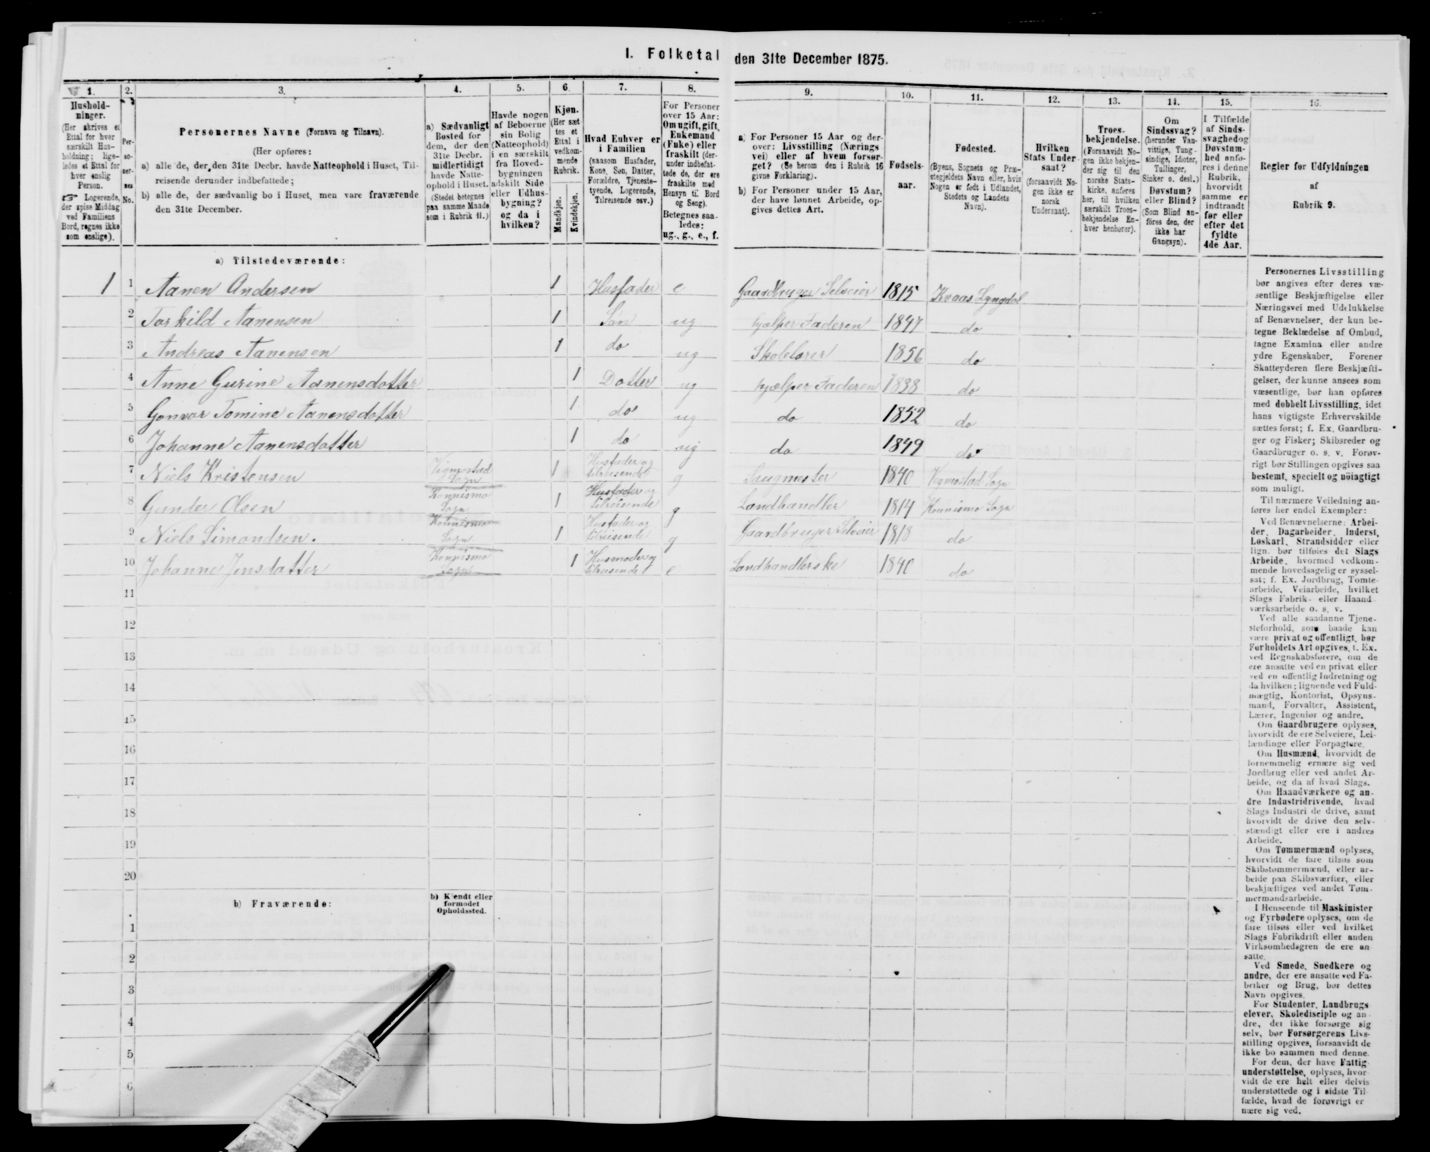 I. Folketal den 31te December 1875.
1.
Hushold-
ninger.
(Her skrives et
Ettal for hver
særskilt Hus-
holdning; lige-
ledes et Ettal for
hver enslig
Person.
☞ Logerende,
der spise Middag
ved Familiens
Bord, regnes ikke
som enslige).
2.
Per-
so-
ner-
nes
No.
3.
Personernes Navne (Fornavn og Tilnavn).
(Her opføres:
a) alle de, der den 31te Decbr. havde Natteophold i Huset, Til-
reisende derunder indbefattede;
b) alle de, der sædvanlig bo i Huset, men vare fraværende
den 31te December.
4.
a) Sædvanligt
Bosted for
dem, der den
31te Decbr.
midlertidigt
havde Natte-
ophold i Huset.
(Stedet betegnes
paa samme Maade
som i Rubrik 11.)
5.
Havde nogen
af Beboerne
sin Bolig
(Natteophold)
i en særskilt
fra Hoved-
bygningen
adskilt Side
eller Udhus-
bygning?
og da i
hvilken?
6.
Kjøn.
(Her sæt
tes et
Ettal i
vedkom-
mende
Rubrik.
Mandkjøn.
Kvindekjøn.
7.
Hvad Enhver er
i Familien
(saasom Husfader,
Kone, Søn, Datter,
Forældre, Tjeneste-
tyende, Logerende,
Tilreisende osv.)
8.
For Personer
over 15 Aar:
Om ugift, gift,
Enkemand
(Enke) eller
fraskilt (der-
under indbefat-
tede de, der ere
fraskilte med
Hensyn til Bord
og Seng).
Betegnes saa-
ledes:
ug., g., e., f.
9.
a) For Personer 15 Aar og der-
over: Livsstilling (Nærings
vei) eller af hvem forsør-
get? (Se herom den i Rubrik 16
givne Forklaring).
b) For Personer under 15 Aar,
der have lønnet Arbeide, op-
gives dettes Art.
10.
Fødsels-
aar.
11.
Fødested.
(Byens, Sognets og Præ-
stegjeldets Navn eller, hvis
Nogen er født i Udlandet,
Stedets og Landets
Navn).
12.
Hvilken
Stats Under
saat?
(forsaavidt No-
gen ikke er
norsk
Undersaat).
13.
Troes-
bekjendelse.
(Forsaavidt No-
gen ikke bekjen-
der sig til den
norske Stats-
kirke, anføres
her, til hvilken
særskilt Troes-
bekjendelse En-
hver henhører).
14.
Om
Sindssvag?
(herunder Van-
vittige, Tung-
sindige, Idioter,
Tullinger,
Sinker o. desl.)
Døvstum?
eller Blind?
(Som Blind an-
føres den, der
ikke har
Gangsyn).
15.
I Tilfælde
af Sinds-
svaghed og
Døvstum-
hed anfø-
res i denne
Rubrik,
hvorvidt
samme er
indtraadt
før eller
efter det
fyldte
4de Aar.
16.
Regler for Udfyldningen
af
Rubrik 9.
a) Tilstedeværende:
1 1 Aanen Andersen 1 Husfader e Gaardbruger Selveier 1815 Lyngdal
2 Torkild Aanensen 1 Søn ug hjælper Faderen 1847 do
3 Andreas Aanensen 1 do ug Skolelærer 1856 do
4 Anne Gurine Aanensdatter 1 Datter ug hjælper Faderen 1838 do
5 Gunvor Tomine Aanensdatter 1 do ug do 1852 do
6 Johanne Aanensdatter 1 do ug do 1849 do
7 Niels Kristensen Vigmostad Sogn 1 Husfader og tilreisende g 1840 Vigmostad Sogn
8 Gunder Olsen Konnismo Sogn 1 Husfader og tilreisende g Landhandler 1814 Konnismo Sogn
9 Niels Simondsen. Konnismo Sogn 1 Husfader og tilreisende g Gaardbruger Selveier 1818 do
10 Johanne Jensdatter Konnismo Sogn 1 Husmoder og tilreisende e Landhandlerske 1840 do
11
12
13
14
15
16
17
18
19
20
b) Fraværende:
b) Kjendt eller
formodet
Opholdssted.
1
2
3
4
5
6
Personernes Livsstilling
bør angives efter deres væ-
sentlige Beskjæftigelse eller
Næringsvei med Udelukkelse
af Benævnelser, der kun be-
tegne Beklædelse af Ombud,
tagne Examina eller andre
ydre Egenskaber. Forener
Skatteyderen flere Beskjæfti-
gelser, der kunne ansees som
væsentlige, bør han opføres
med dobbelt Livsstilling, idet
hans vigtigste Erhvervskilde
sættes først; f. Ex. Gaardbru-
ger og Fisker; Skibsreder og
Gaardbruger o. s. v. Forøv-
rigt bør Stillingen opgives saa
bestemt, specielt og nøiagtigt
som muligt.
Til nærmere Veiledning an-
føres her endel Exempler:
Ved Benævnelserne: Arbei-
der, Dagarbeider, Inderst,
Løskarl, Strandsidder eller
lign. bør tilføies det Slags
Arbeide, hvormed vedkom-
mende hovedsagelig er syssel-
sat; f. Ex. Jordbrug, Tomte-
arbeide, Veiarbeide, hvilket
Slags Fabrik- eller Haand
værksarbeide o. s. v.
Ved alle saadanne Tjene-
steforhold, som baade kan
være privat og offentligt, bør
Forholdets Art opgives, f. Ex.
ved Regnskabsførere, om de
ere ansatte ved en privat eller
ved en offentlig Indretning og
da hvilken; lignende ved Fuld-
mægtig, Kontorist, Opsyns-
mand, Forvalter, Assistent,
Lærer, Ingeniør og andre.
Om Gaardbrugere oplyses,
hvorvidt de ere Selveiere, Lei-
lændinge eller Forpagtere.
Om Husmænd, hvorvidt de
fornemmelig ernære sig ved
Jordbrug eller ved andet Ar-
beide, og da af hvad Slags.
Om Haandværkere og an-
dre Industridrivende, hvad
Slags Industri de drive, samt
hvorvidt de drive den selv-
stændigt eller ere i andres
Arbeide.
Om Tømmermænd oplyses,
hvorvidt de fare tilsøs som
Skibstømmermænd, eller ar-
beide paa Skibsværfter, eller
beskjæftiges ved andet Tøm-
mermandsarbeide.
I Henseende til Maskinister
og Fyrbødere oplyses, om de
fare tilsøs eller ved hvilket
Slags Fabrikdrift eller anden
Virksomhedsgren de ere an
satte.
Ved Smede, Snedkere og
andre, der ere ansatte ved Fa-
briker og Brug, bør dettes
Navn opgives.
For Studenter, Landbrugs
elever, Skoledisciple og an-
dre, der ikke forsørge sig
selv, bør Forsørgerens Livs-
stilling opgives, forsaavidt de
ikke bo sammen med denne.
For dem, der have Fattig
understøttelse, oplyses, hvor-
vidt de ere helt eller delvis
understøttede og i sidste Til
fælde, hvad de forøvrigt er
nære sig ved.